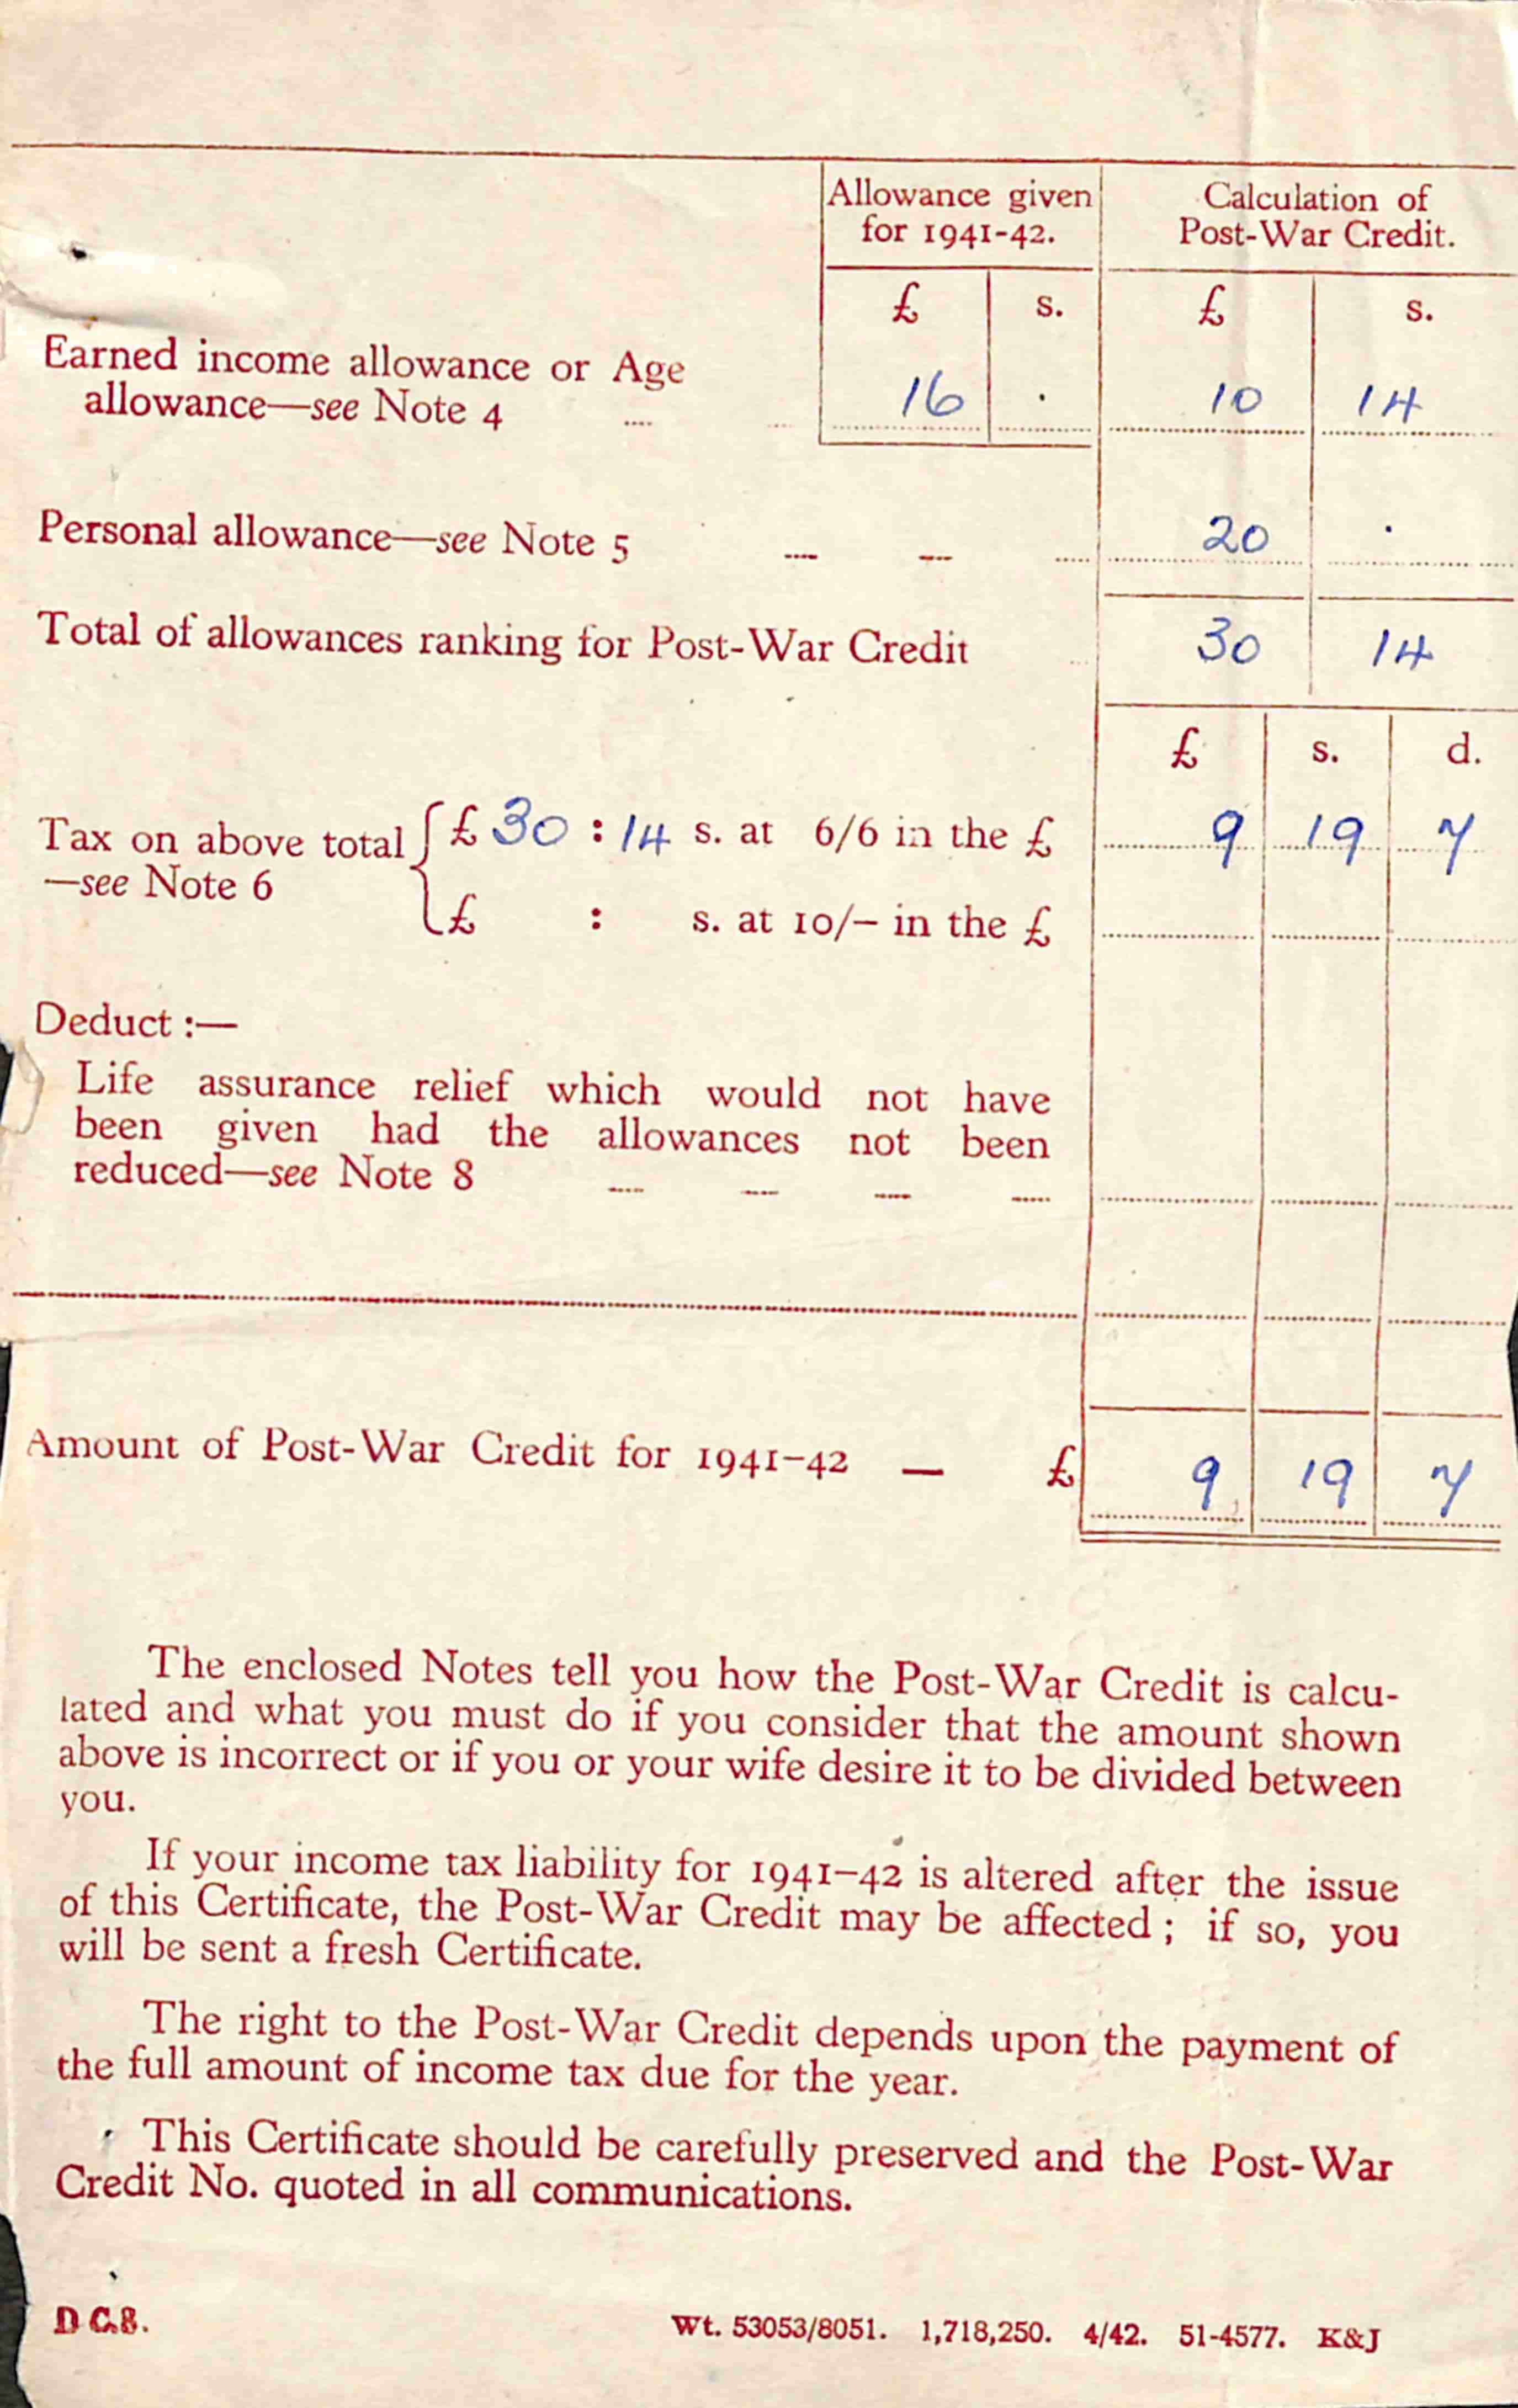 Allowance given
for 1941-42.
Calculation of
Post-War Credit.
£ s. £ s.
Earned income allowance or Age
allowance—see Note 4 .... ... 16 . 10 14
Personal allowance—see Note 5 .... .... .... 20 .
Total of allowances ranking for Post-War Credit ... 30 14
£ s. d.
Tax on above total { £ 30 : 14 s. at 6/6 in the £ 9 19 7
—see Note 6
£ : s. at 10/– in the £
Deduct :—
Life assurance relief which would not have
been given had the allowances not been
reduced—see Note 8 .... .... .... ....
Amount of Post-War Credit for 1941–42 — £ 9 19 7
The enclosed Notes tell you how the Post-War Credit is calcu-
lated and what you must do if you consider that the amount shown
above is incorrect or if you or your wife desire it to be divided between
you.
If your income tax liability for 1941–42 is altered after the issue
of this Certificate, the Post-War Credit may be affected ; if so, you
will be sent a fresh Certificate.
The right to the Post-War Credit depends upon the payment of
the full amount of income tax due for the year.
This Certificate should be carefully preserved and the Post-War
Credit No. quoted in all communications.
D C.8. Wt. 53053/8051. 1,718,250. 4/42. 51-4577. K&J